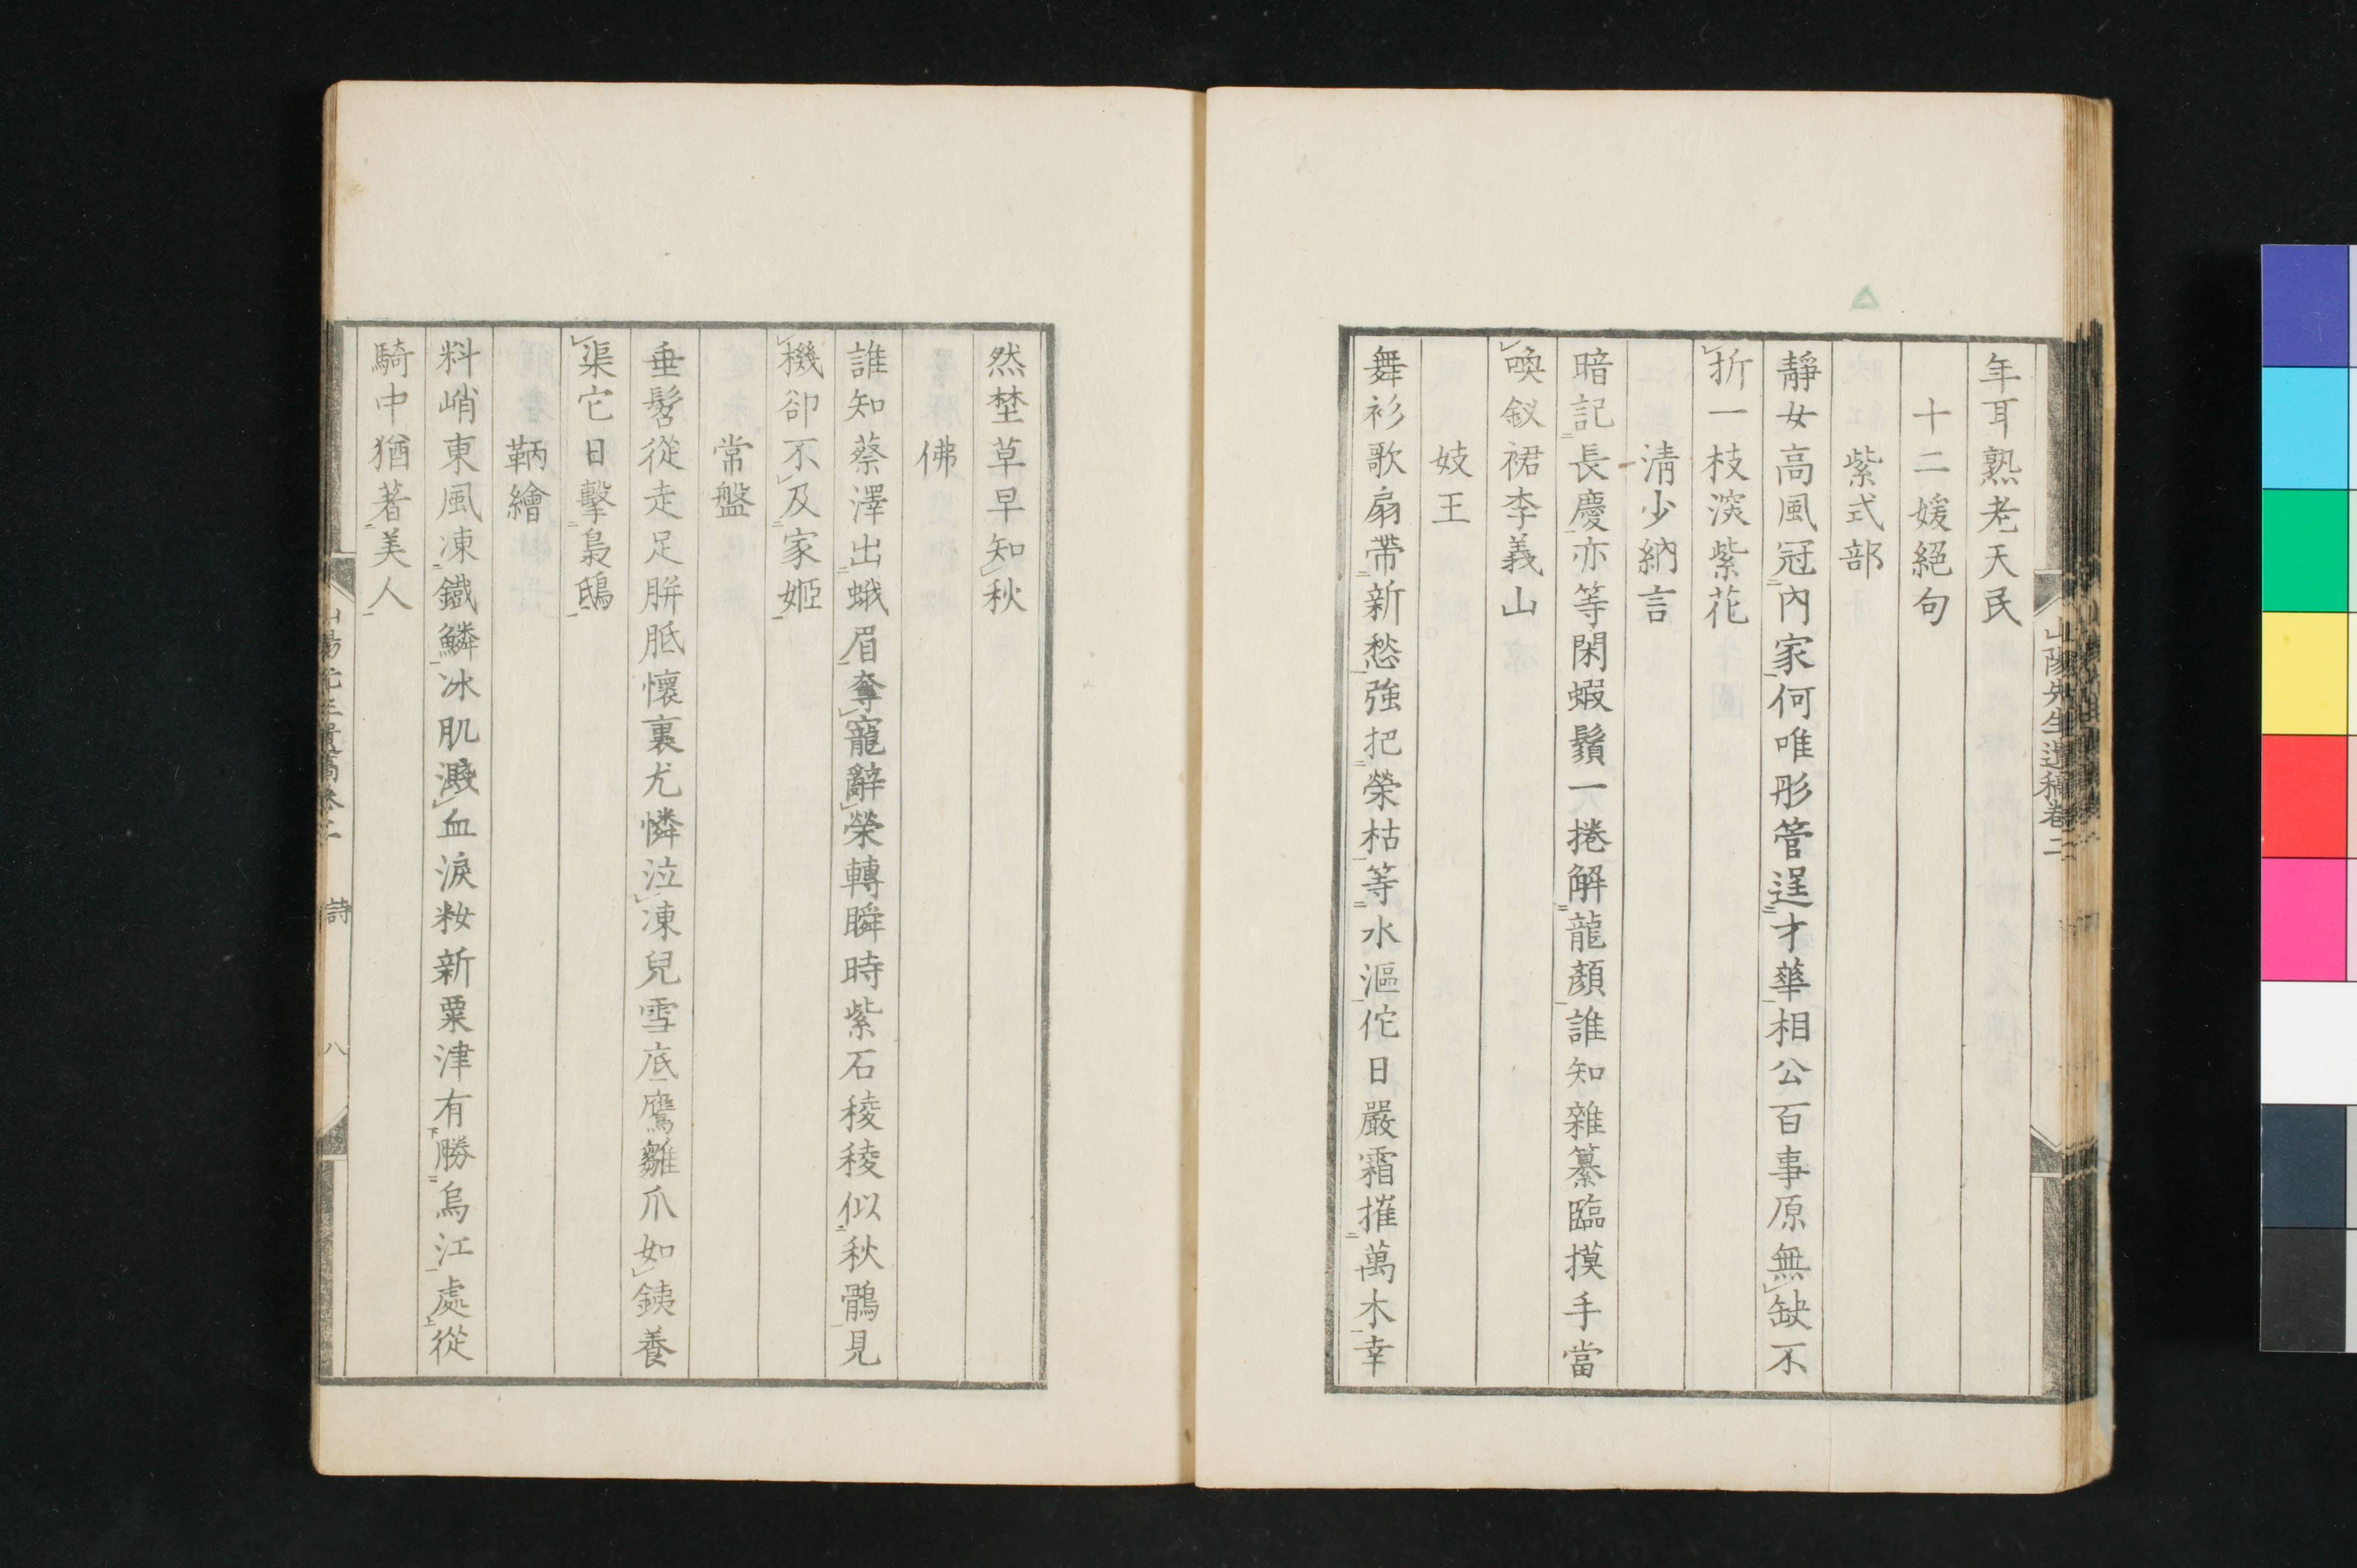 年耳熟老天民
十二媛絕句
紫式部
靜女高風冠內家何唯彤管逞才華相公百事原無缺不
折一枝深紫花
淸少納言
暗記長慶亦等閑蝦鬚一捲解龍顏誰知雜纂臨摸手當
喚釵裙李義山
妓王
舞衫歌扇帶新愁強把榮枯等水漚佗日嚴霜摧萬木幸
山陽先生遺稿卷二
然埜草早知秋
佛
誰知蔡澤出蛾眉奪寵辭榮轉瞬時紫石稜稜似秋鶻見
機卻不及家姬
常盤
垂髫從走足胼胝懷裏尤憐泣凍兒雪底鷹雛爪如銕養
渠它日擊梟鴟
鞆繪
料峭東風凍鐵鱗冰肌濺血淚粧新粟津有勝烏江處從
騎中猶著美人
山陽先生遺稿卷二 詩 八